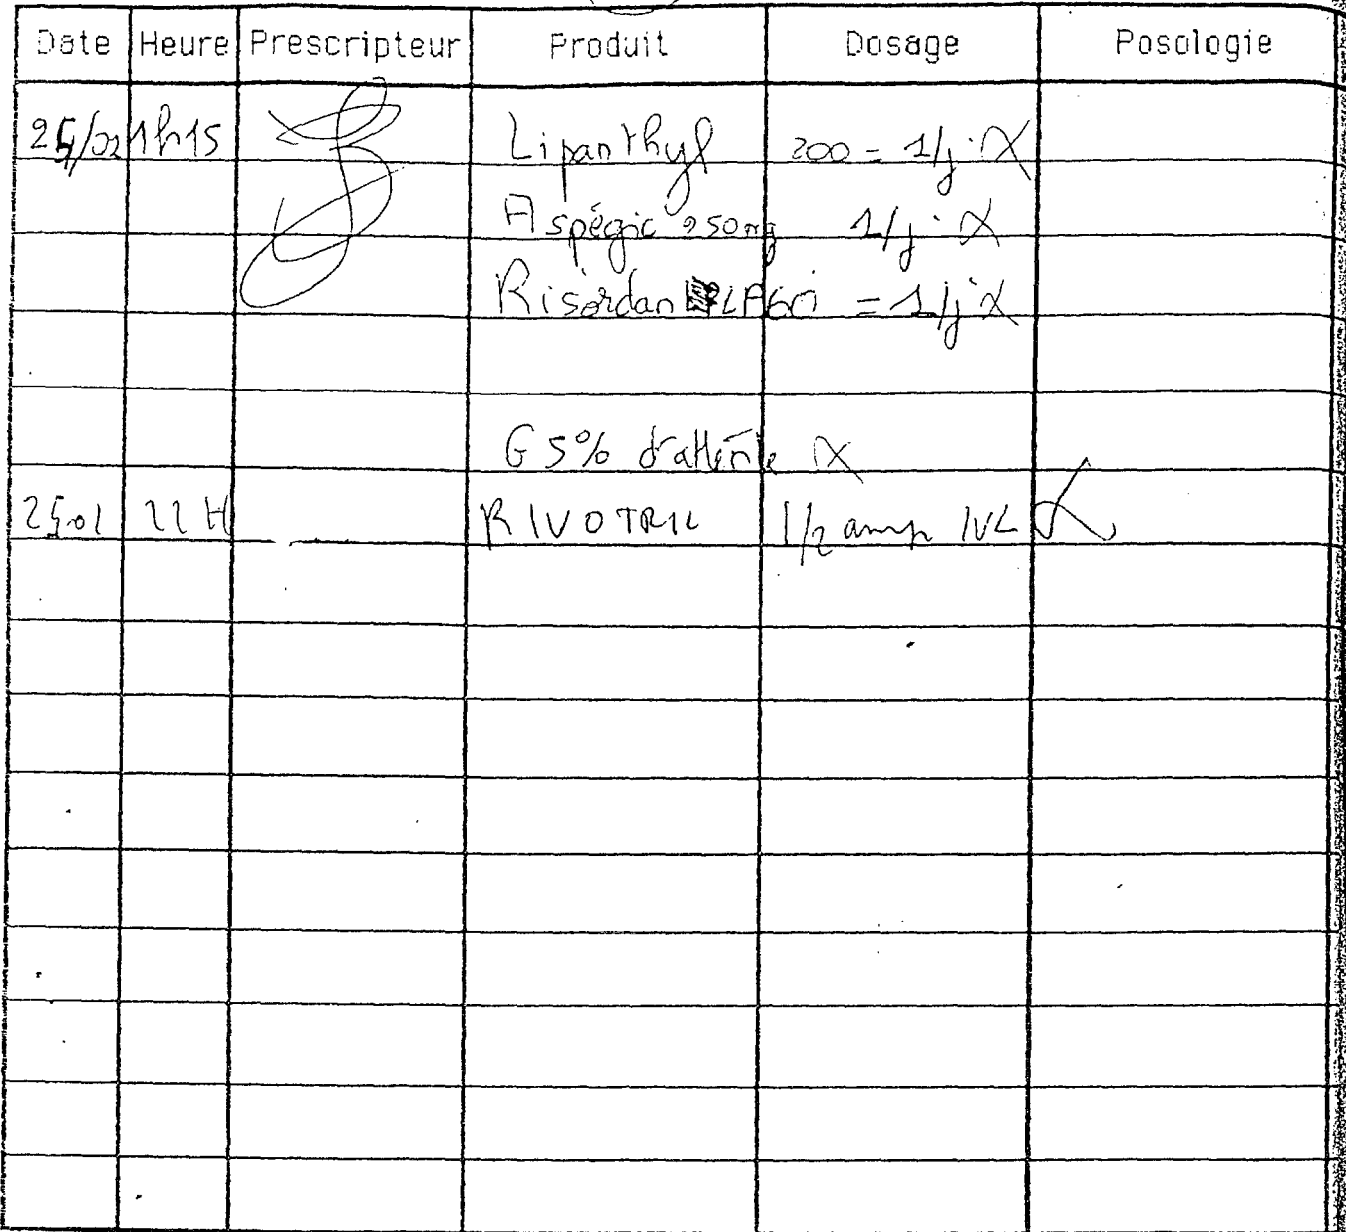 Date Heure Prescripteur Produit Dosage Posologie
25/02 1h15 Lipanthyl 200 = 1/j X
Aspégic 250mg 1/j X
Risordan LP60 = 1/j X
G 5% d'attente X
22H RIVOTRIL 1/2 amp IVL